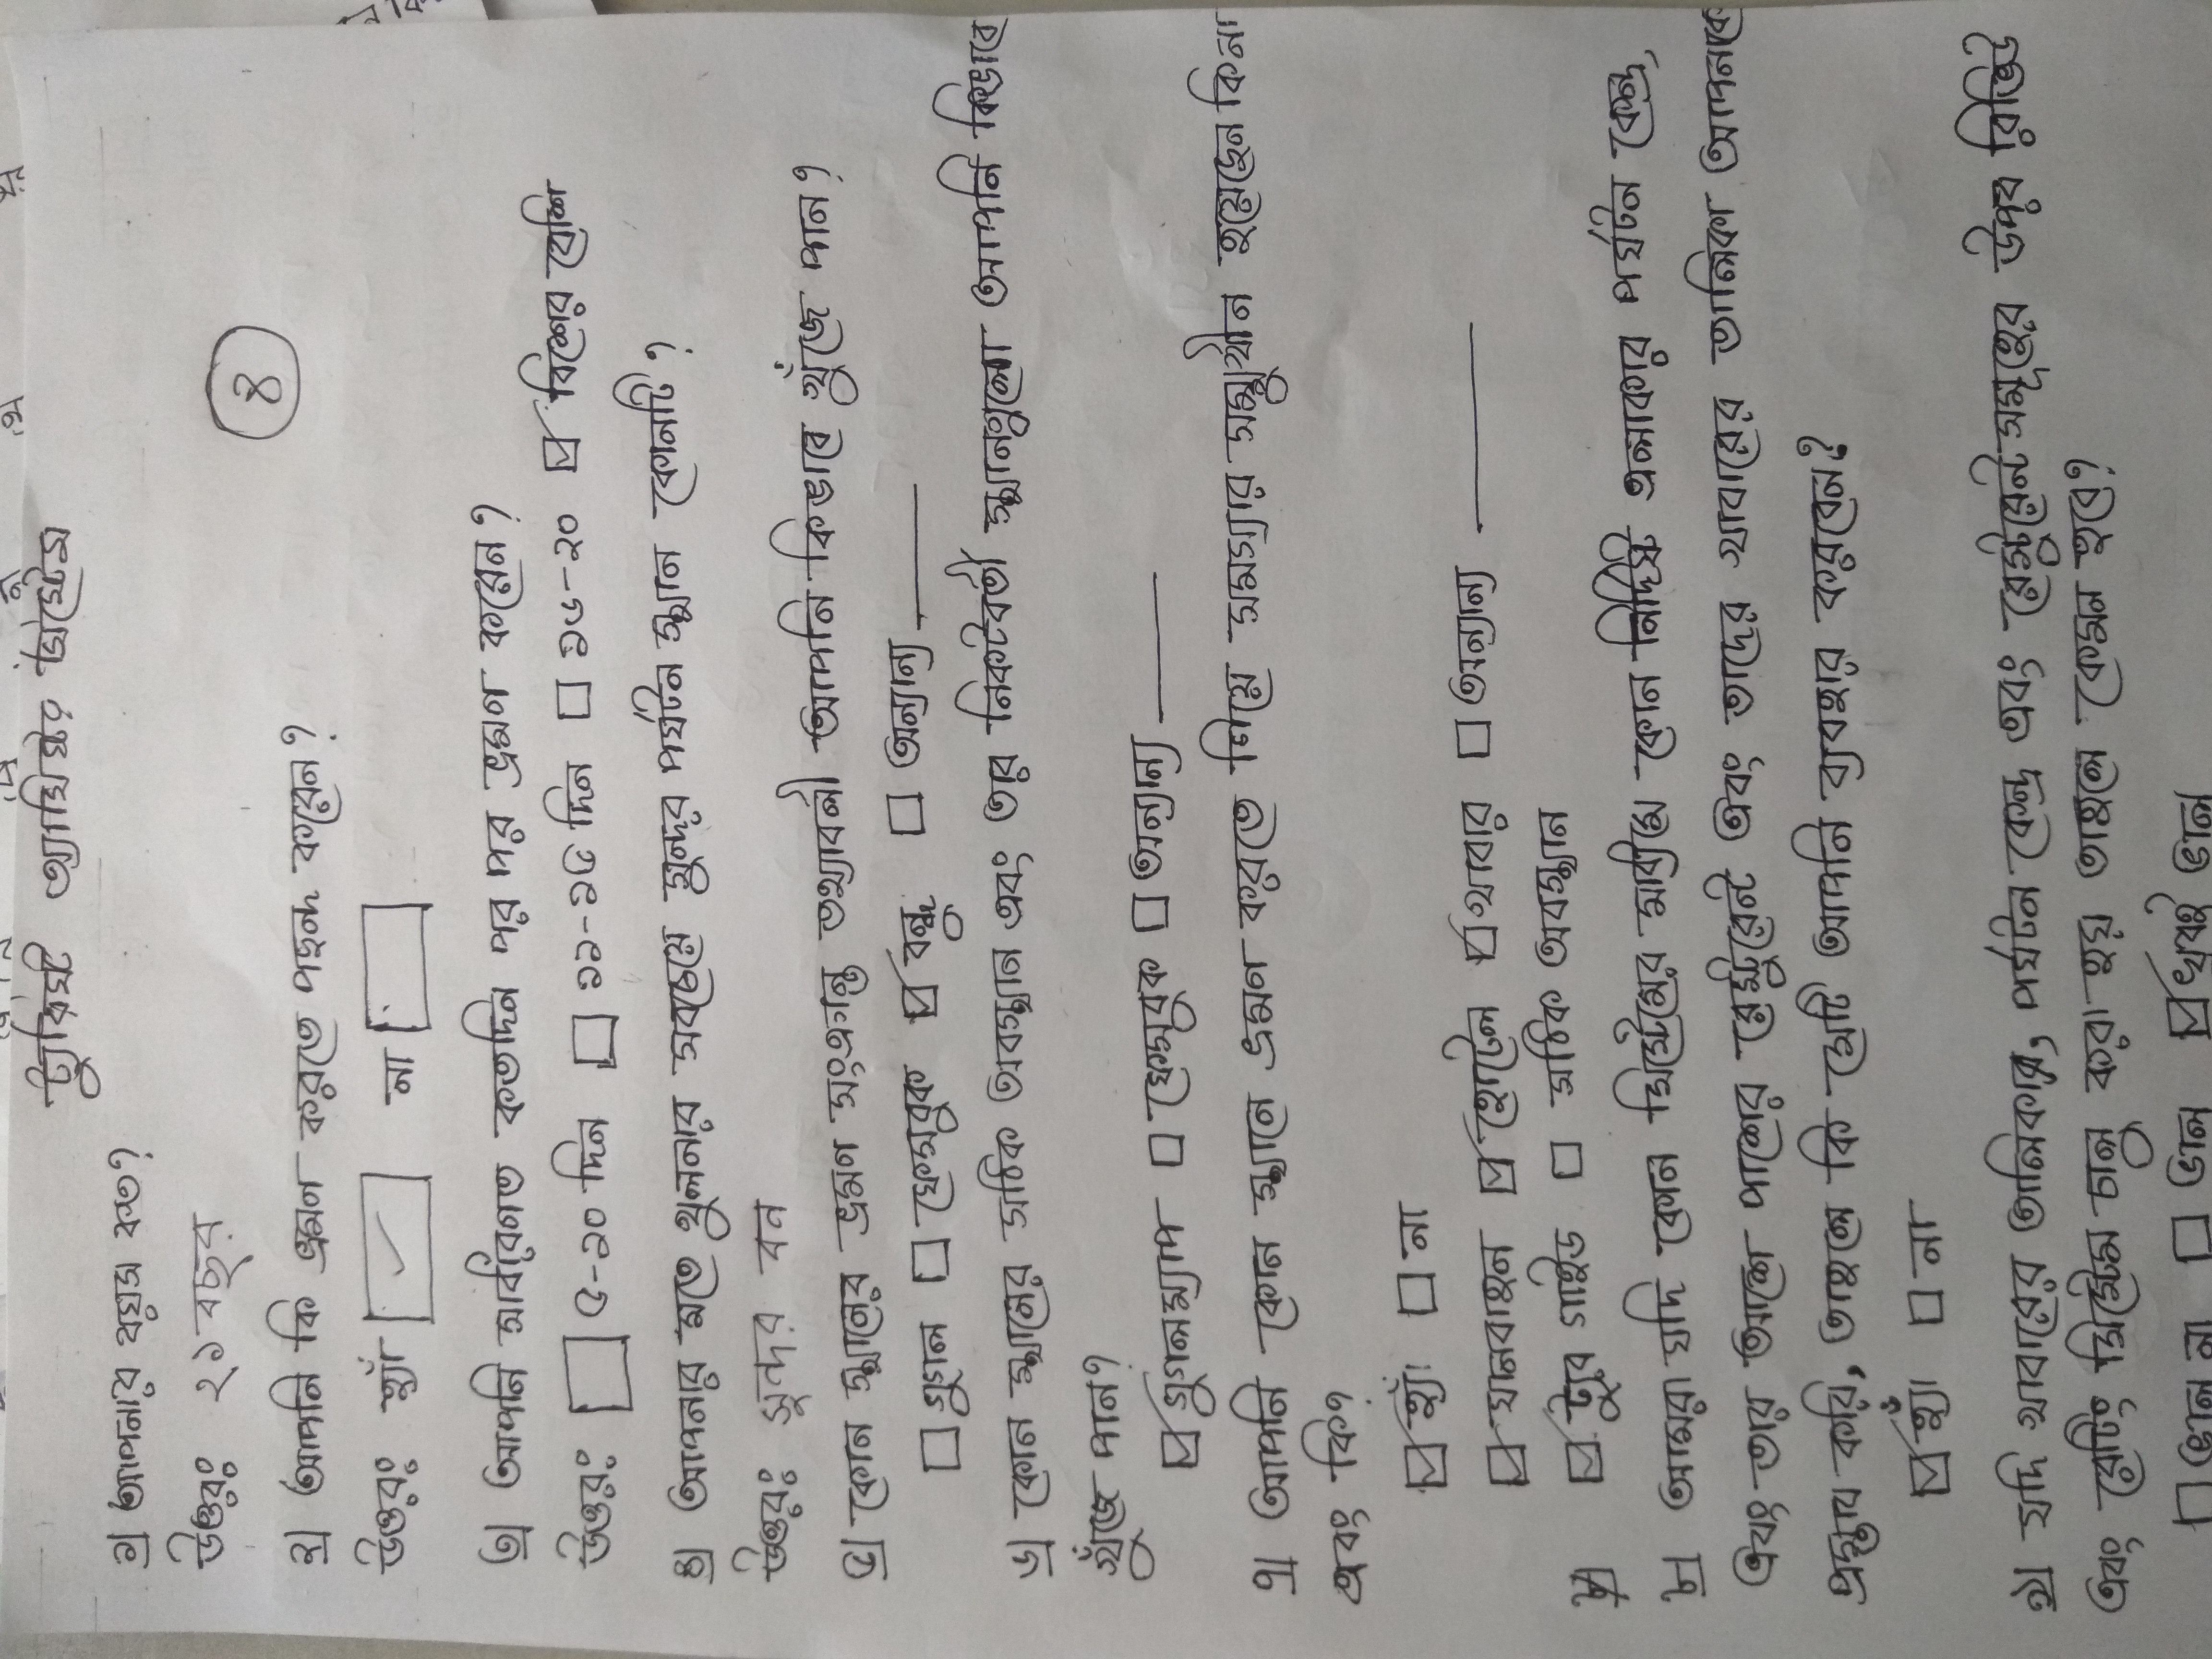 ট্যুরিস্ট অ্যাসিস্টং সিস্টেম
৪
১| আপনার বয়স কত?
উত্তরঃ ২১ বছর
২| আপনি কি ভ্রমন করতে পছন্দ করেন?
উত্তরঃ হ্যাঁ ☑ না ☐
৩| আপনি সাধারণত কতদিন পর পর ভ্রমণ করেন?
উত্তরঃ ☐ ৫-১০ দিন ☐ ১১-১৫ দিন ☐ ১৬-২০ ☑ বিশের বেশি
৪| আপনার মতে খুলনার সবচেয়ে সুন্দর পর্যটন স্থান কোনটি?
উত্তরঃ সুন্দর বন
৫| কোন স্থানের ভ্রমন সংক্রান্ত তথ্যাবলী আপনি কিভাবে খুঁজে পান?
☐ গুগল ☐ ফেসবুক ☑ বন্ধু ☐ অন্যান্য ______
৬| কোন স্থানের সঠিক অবস্থান এবং তার নিকটবর্তী স্থানগুলো আপনি কিভাবে
খুঁজে পান?
☑ গুগলম্যাপ ☐ ফেসবুক ☐ অন্যান্য ______
৭| আপনি কোন স্থানে ভ্রমন করতে গিয়ে সমস্যার সম্মুখীন হয়েছেন কিনা
এবং কি?
☑ হ্যাঁ ☐ না
☑ যানবাহন ☑ হোটেল ☑ খাবার ☐ অন্যান্য ______
☑ ট্যুর গাইড ☐ সঠিক অবস্থান
৮| আমরা যদি কোন সিস্টেমের মাধ্যমে কোন নির্দিষ্ট এলাকার পর্যটন কেন্দ্র,
এবং তার আশে পাশের রেস্টুরেন্ট এবং তাদের খাবারের তালিকা আপনাকে
প্রস্তাব করি, তাহলে কি সেটি আপনি ব্যবহার করবেন?
☑ হ্যাঁ ☐ না
৯| যদি খাবারের তালিকায়, পর্যটন কেন্দ্র এবং রেস্টুরেন্ট সমূহের উপর রিভিউ
এবং রেটিং সিস্টেম চালু করা হয় তাহলে কেমন হবে?
☐ ভাল না ☐ ভাল ☑ খুবই ভাল